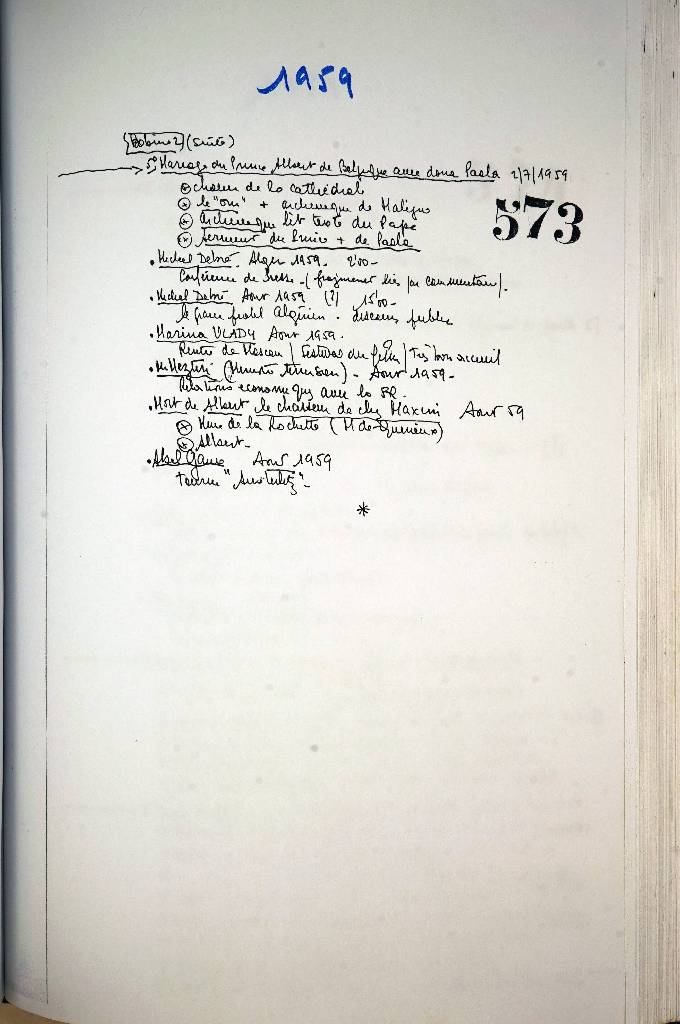 1959
Bobine 2 (suite)
5° Mariage du Prince Albert de Belgique avec dona Paola 2/7/1959
573
choeur de la cathédrale
le "oui" + archeveque de Malines
Archeveque lit texte du Pape
serment du Prince + de Paola
. Michel Debré Alger 1959. 2'00-
Conférence de Presse - (fragments liés par commentaire).
. Michel Debré Aout 1959 (?) 15'00-
le grave problème Algérien. discours public
. Marina VLADY Aout 1959.
Rentre de Moscou / Festival du film / Très bon accueil
(Ministre tunisien) - Aout 1959 -
Relations economiques avec la
. Mort de Albert le chasseur de chez Maxim Aout 59
de la Rochette (M de
Albert -
. Abel Gance Aout 1959
tourne "Austerlitz" -
*